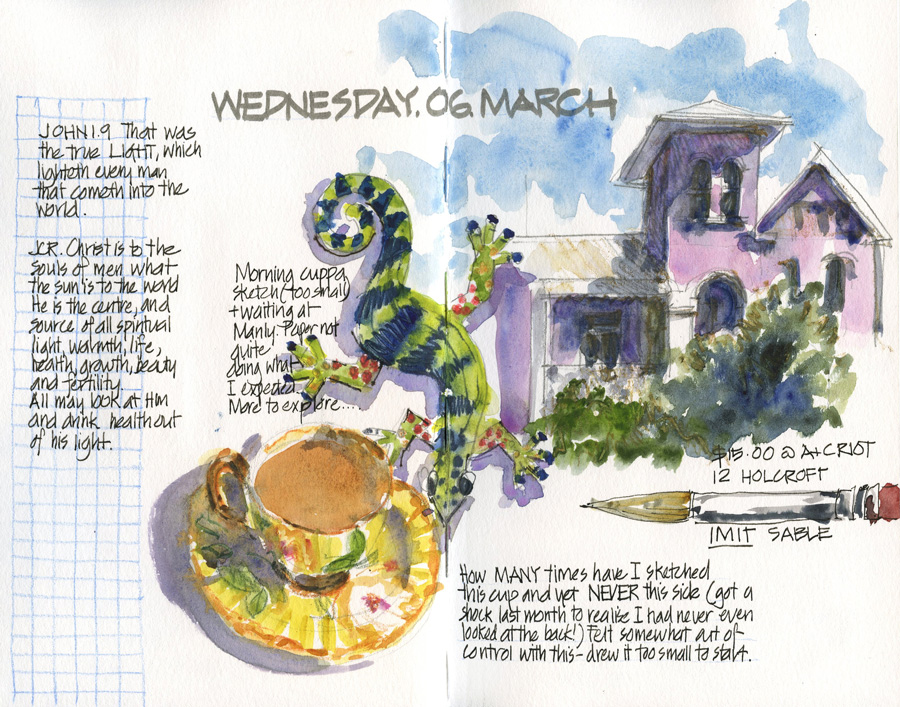 WEDNESDAY. 06 MARCH
JOHN 1.9 That was
the true LIGHT, which
lighteth every man
that cometh into the
world.
JCR. Christ is to the
souls of men what
the sun is to the world
He is the centre, and
source of all spiritual
light, warmth, life,
health, growth, beauty
and fertility.
All may look at Him
and drink health out
of his light.
Morning cuppa
sketch (too small)
+ waiting at
Manly. Paper not
quite
doing what
I expected.
More to explore....
$15.00 @ A+CRIOT
12 HOLCROFT
IMIT SABLE
How MANY times have I sketched
this cup and yet NEVER this side (got a
shock last month to realise I had never even
looked at the back!) Felt somewhat out of
control with this - drew it too small to start.